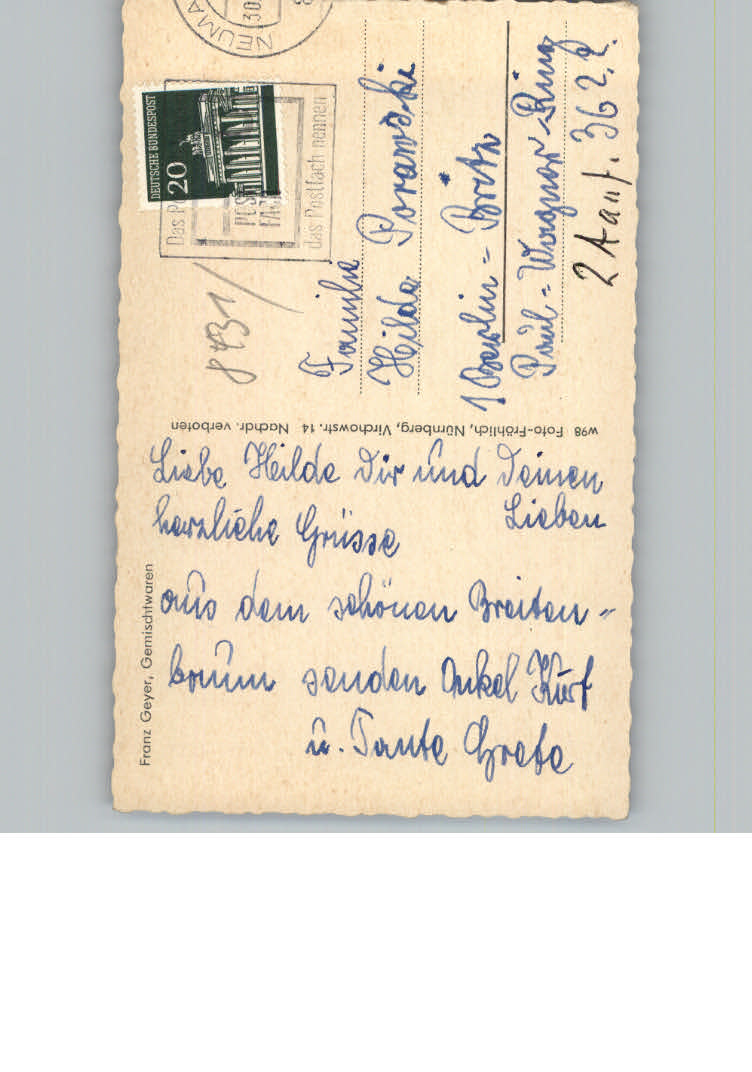 NEUMA
30.
DEUTSCHE BUNDESPOST
20
Das Po
POST
FACH
das Postfach nennen
8431
Familie
Hilde Poranski
1 Berlin = Britz
Paul = Wagner Ring
36 2. r.
w98 Foto-Fröhlich, Nürnberg, Virchowstr. 14 Nachdr. verboten
Franz Geyer, Gemischtwaren
Liebe Hilde Dir und Deinen
Lieben
herzliche Grüsse
aus dem schönen Breiten=
brunn senden Onkel Kurt
u. Tante Grete